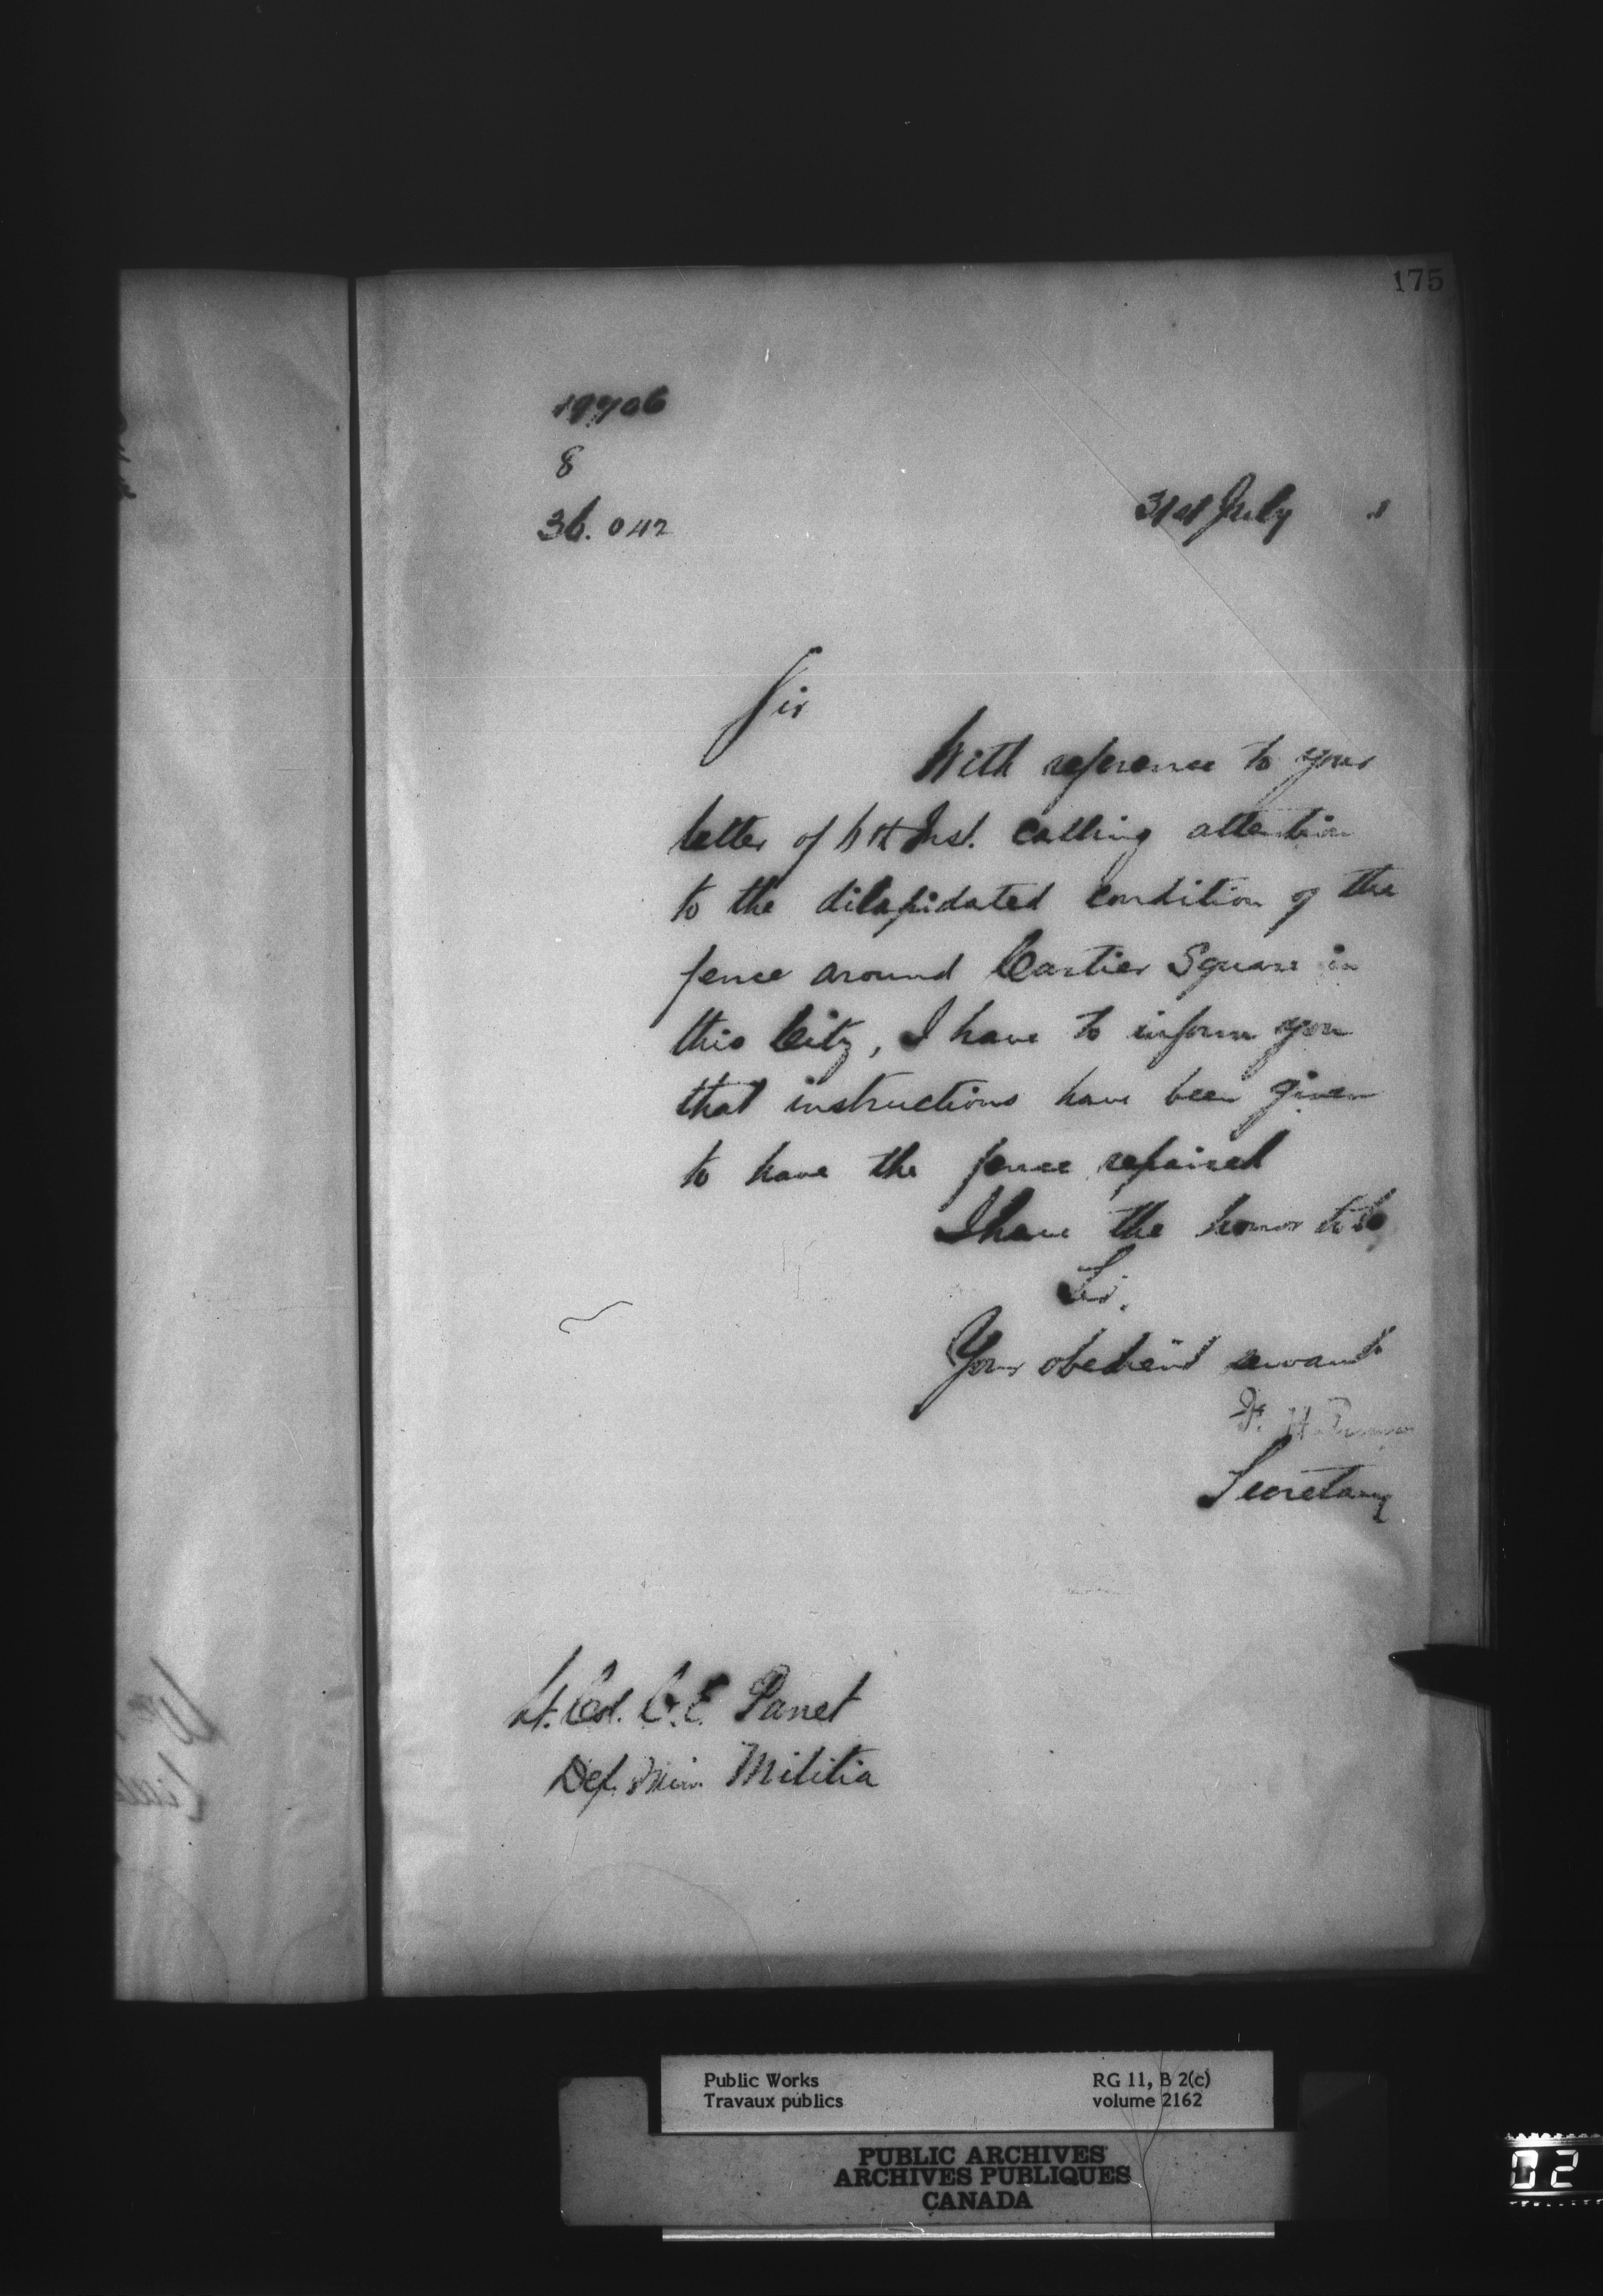 175
19706
8
36.042
31st July 1
Sir
With reference to your
letter of Inst. calling attention
to the dilapidated condition of the
fence around Cartier Square in
this City, I have to inform you
that instructions have been given
to have the fence repaired
I have the honor to be
Sir,
Your obedient servant
F. H.
Secretary
Lt. Col. C. E. Panet
Dep. Min. Militia
Public Works
Travaux publics
RG 11, B 2(c)
volume 2162
PUBLIC ARCHIVES
ARCHIVES PUBLIQUES
CANADA
02